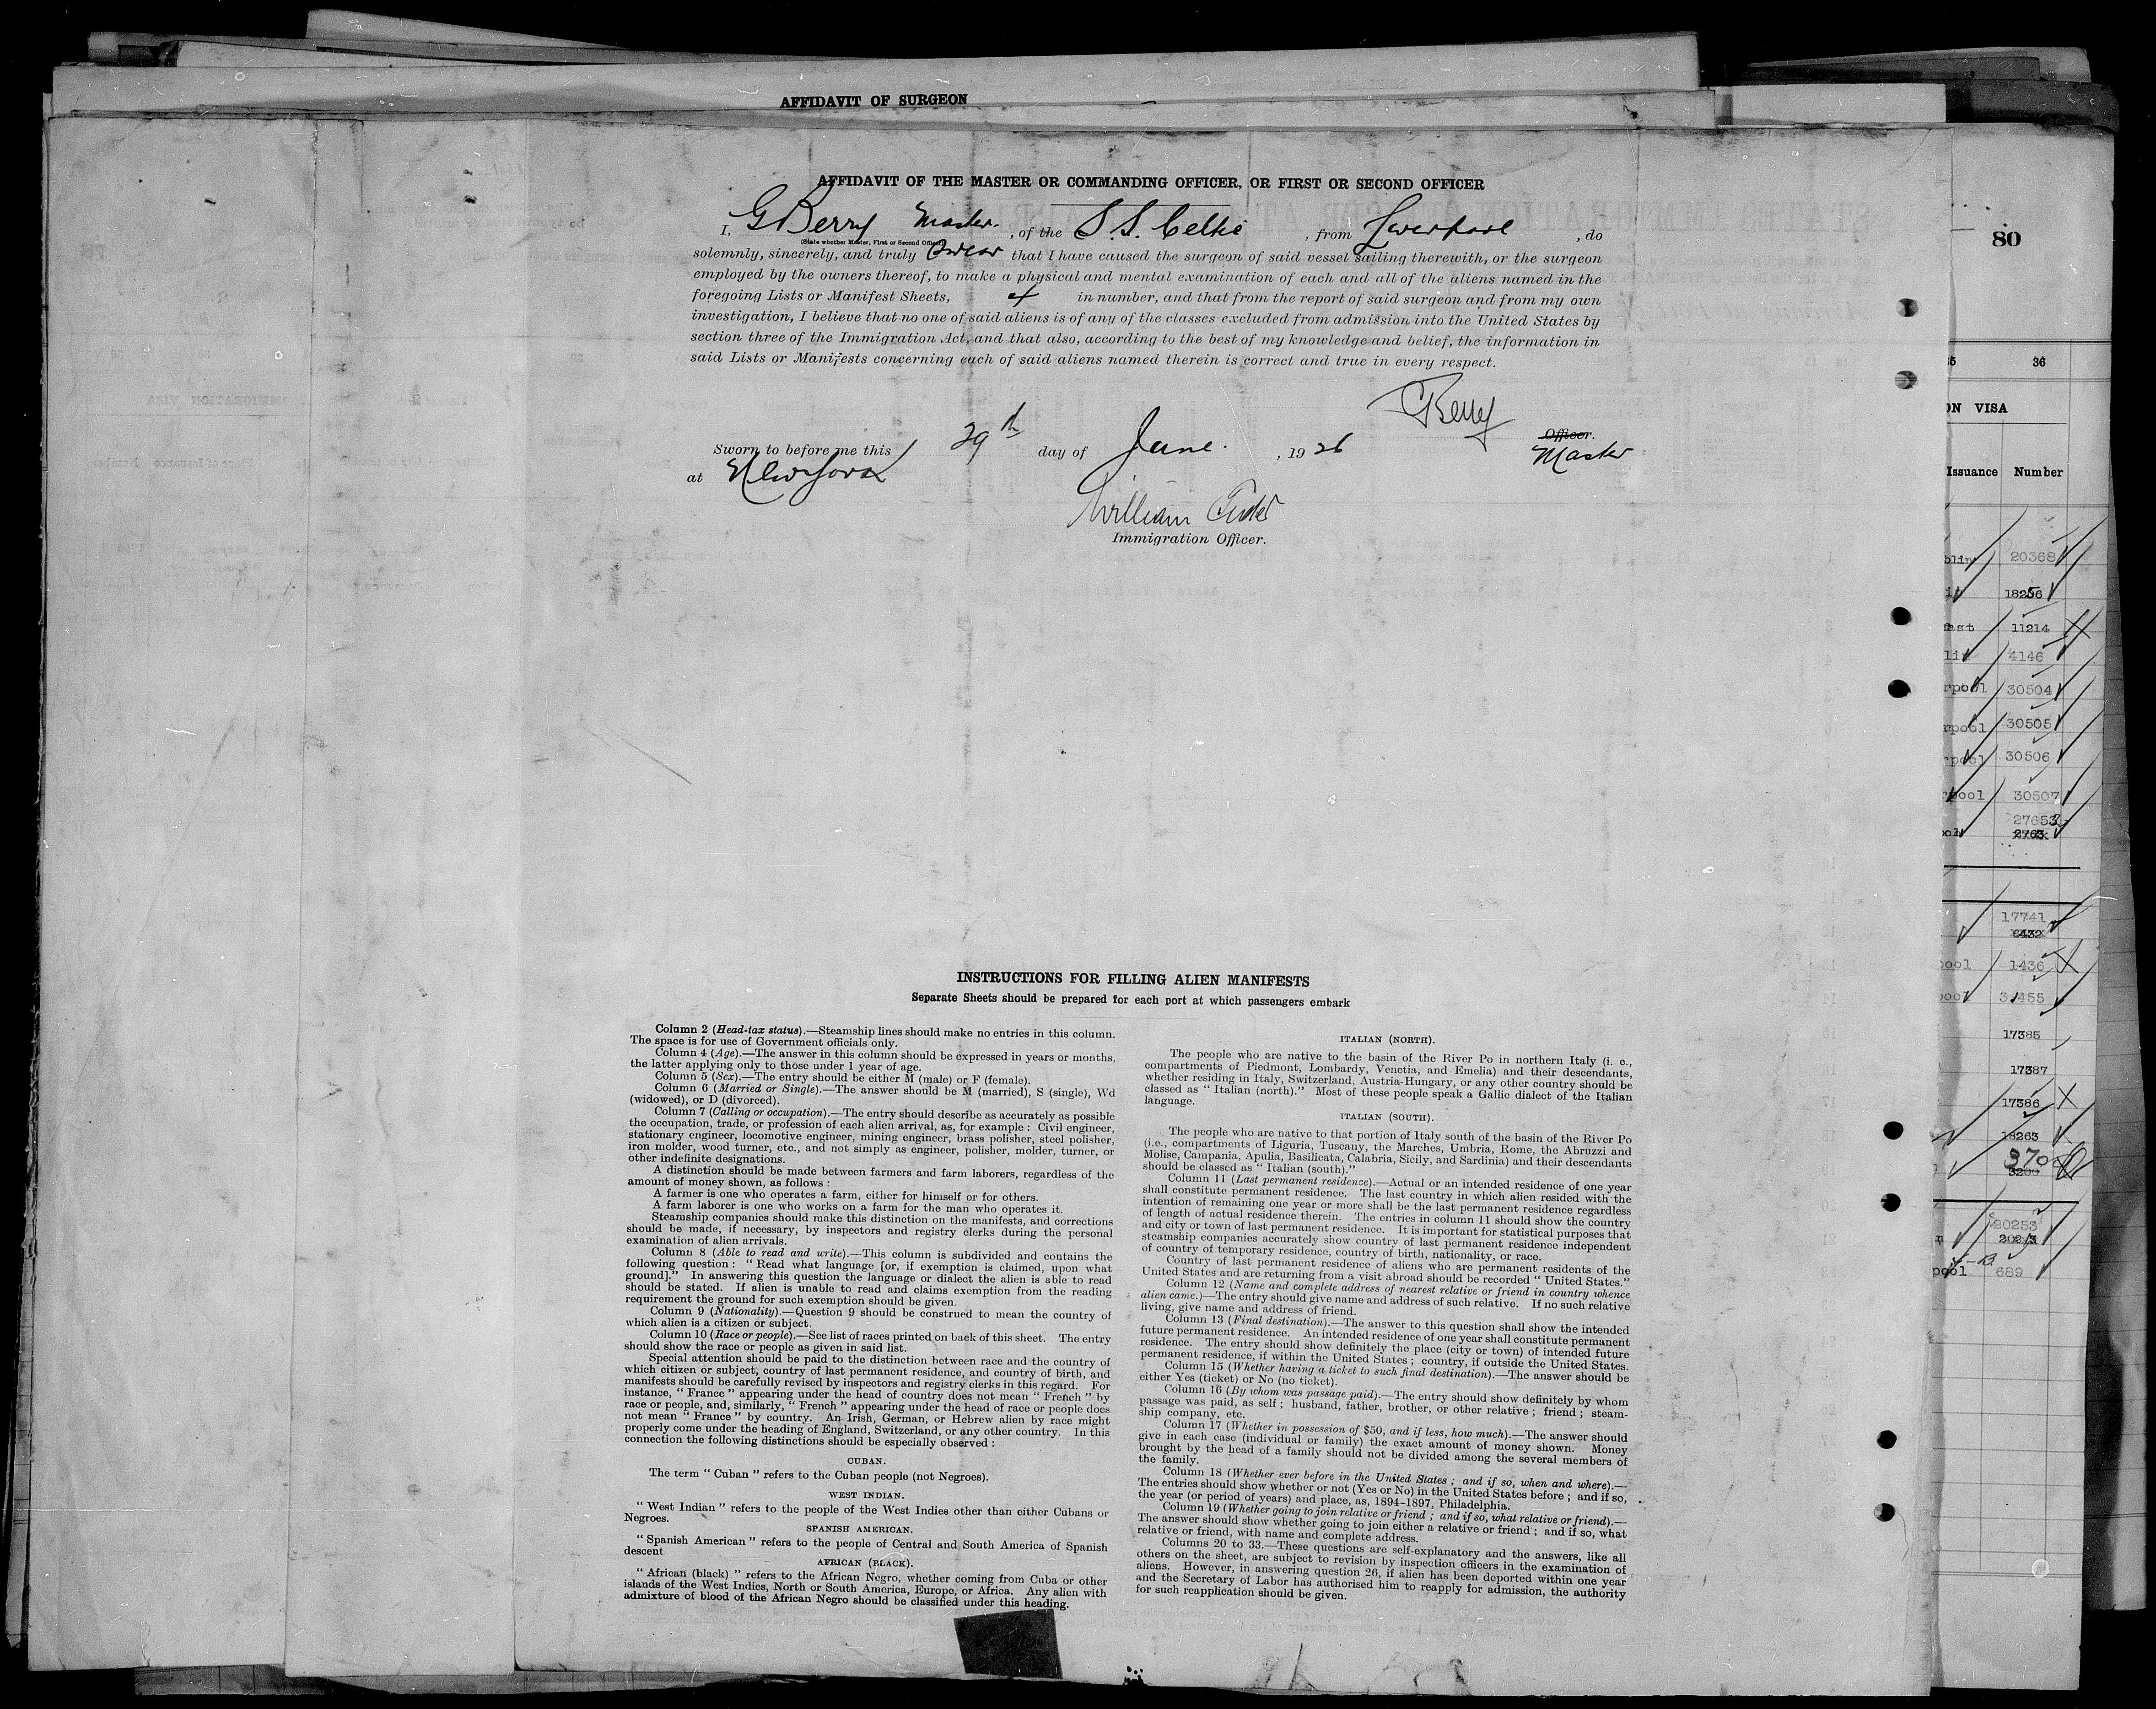 AFFIDAVIT OF SURGEON
AFFIDAVIT OF THE MASTER OR COMMANDING OFFICER, OR FIRST OR SECOND OFFICER
I, G Berry Master , of the S.S. Celtic , from Liverpool , do
(State whether Master, First or Second Officer)
solemnly, sincerely, and truly swear that I have caused the surgeon of said vessel sailing therewith, or the surgeon
employed by the owners thereof, to make a physical and mental examination of each and all of the aliens named in the
foregoing Lists or Manifest Sheets, 4 in number, and that from the report of said surgeon and from my own
investigation, I believe that no one of said aliens is of any of the classes excluded from admission into the United States by
section three of the Immigration Act, and that also, according to the best of my knowledge and belief, the information in
said Lists or Manifests concerning each of said aliens named therein is correct and true in every respect.
G Berry
Officer.
Master
Sworn to before me this 29th day of June. , 1926
at New York
William
Immigration Officer.
INSTRUCTIONS FOR FILLING ALIEN MANIFESTS
Separate Sheets should be prepared for each port at which passengers embark
Column 2 (Head-tax status).—Steamship lines should make no entries in this column.
The space is for use of Government officials only.
Column 4 (Age).—The answer in this column should be expressed in years or months,
the latter applying only to those under 1 year of age.
Column 5 (Sex).—The entry should be either M (male) or F (female).
Column 6 (Married or Single).—The answer should be M (married), S (single), Wd
(widowed), or D (divorced).
Column 7 (Calling or occupation).—The entry should describe as accurately as possible
the occupation, trade, or profession of each alien arrival, as, for example : Civil engineer,
stationary engineer, locomotive engineer, mining engineer, brass polisher, steel polisher,
iron molder, wood turner, etc., and not simply as engineer, polisher, molder, turner, or
other indefinite designations.
A distinction should be made between farmers and farm laborers, regardless of the
amount of money shown, as follows :
A farmer is one who operates a farm, either for himself or for others.
A farm laborer is one who works on a farm for the man who operates it.
Steamship companies should make this distinction on the manifests, and corrections
should be made, if necessary, by inspectors and registry clerks during the personal
examination of alien arrivals.
Column 8 (Able to read and write).—This column is subdivided and contains the
following question : " Read what language [or, if exemption is claimed, upon what
ground]." In answering this question the language or dialect the alien is able to read
should be stated. If alien is unable to read and claims exemption from the reading
requirement the ground for such exemption should be given.
Column 9 (Nationality).—Question 9 should be construed to mean the country of
which alien is a citizen or subject.
Column 10 (Race or people).—See list of races printed on back of this sheet. The entry
should show the race or people as given in said list.
Special attention should be paid to the distinction between race and the country of
which citizen or subject, country of last permanent residence, and country of birth, and
manifests should be carefully revised by inspectors and registry clerks in this regard. For
instance, " France " appearing under the head of country does not mean " French " by
race or people, and, similarly, " French " appearing under the head of race or people does
not mean " France " by country. An Irish, German, or Hebrew alien by race might
properly come under the heading of England, Switzerland, or any other country. In this
connection the following distinctions should be especially observed :
CUBAN.
The term " Cuban " refers to the Cuban people (not Negroes).
WEST INDIAN.
" West Indian " refers to the people of the West Indies other than either Cubans or
Negroes.
SPANISH AMERICAN.
" Spanish American " refers to the people of Central and South America of Spanish
descent
AFRICAN (BLACK).
" African (black) " refers to the African Negro, whether coming from Cuba or other
islands of the West Indies, North or South America, Europe, or Africa. Any alien with
admixture of blood of the African Negro should be classified under this heading.
ITALIAN (NORTH).
The people who are native to the basin of the River Po in northern Italy (i. e.,
compartments of Piedmont, Lombardy, Venetia, and Emelia) and their descendants,
whether residing in Italy, Switzerland, Austria-Hungary, or any other country should be
classed as " Italian (north)." Most of these people speak a Gallic dialect of the Italian
language.
ITALIAN (SOUTH).
The people who are native to that portion of Italy south of the basin of the River Po
(i.e., compartments of Liguria, Tuscany, the Marches, Umbria, Rome, the Abruzzi and
Molise, Campania, Apulia, Basilicata, Calabria, Sicily, and Sardinia) and their descendants
should be classed as " Italian (south)."
Column 11 (Last permanent residence).—Actual or an intended residence of one year
shall constitute permanent residence. The last country in which alien resided with the
intention of remaining one year or more shall be the last permanent residence regardless
of length of actual residence therein. The entries in column 11 should show the country
and city or town of last permanent residence. It is important for statistical purposes that
steamship companies accurately show country of last permanent residence independent
of country of temporary residence, country of birth, nationality, or race.
Country of last permanent residence of aliens who are permanent residents of the
United States and are returning from a visit abroad should be recorded " United States."
Column 12 (Name and complete address of nearest relative or friend in country whence
alien came.)—The entry should give name and address of such relative. If no such relative
living, give name and address of friend.
Column 13 (Final destination).—The answer to this question shall show the intended
future permanent residence. An intended residence of one year shall constitute permanent
residence. The entry should show definitely the place (city or town) of intended future
permanent residence, if within the United States ; country, if outside the United States.
Column 15 (Whether having a ticket to such final destination).—The answer should be
either Yes (ticket) or No (no ticket).
Column 16 (By whom was passage paid).—The entry should show definitely by whom
passage was paid, as self ; husband, father, brother, or other relative ; friend ; steam-
ship company, etc.
Column 17 (Whether in possession of $50, and if less, how much).—The answer should
give in each case (individual or family) the exact amount of money shown. Money
brought by the head of a family should not be divided among the several members of
the family.
Column 18 (Whether ever before in the United States ; and if so, when and where).—
The entries should show whether or not (Yes or No) in the United States before ; and if so,
the year (or period of years) and place, as, 1894-1897, Philadelphia.
Column 19 (Whether going to join relative or friend ; and if so, what relative or friend).—
The answer should show whether going to join either a relative or friend ; and if so, what
relative or friend, with name and complete address.
Columns 20 to 33.—These questions are self-explanatory and the answers, like all
others on the sheet, are subject to revision by inspection officers in the examination of
aliens. However, in answering question 26, if alien has been deported within one year
and the Secretary of Labor has authorised him to reapply for admission, the authority
for such reapplication should be given.
80
36
ON VISA
Issuance Number
blin 20368
18256
fast 11214
lin 4146
rpool 30504
rpool 30505
rpool 30506
rpool 30507
27653
ool
17741
6432
pool 1436
pool 31455
17385
17387
17386
18263
370
20253
pool 689